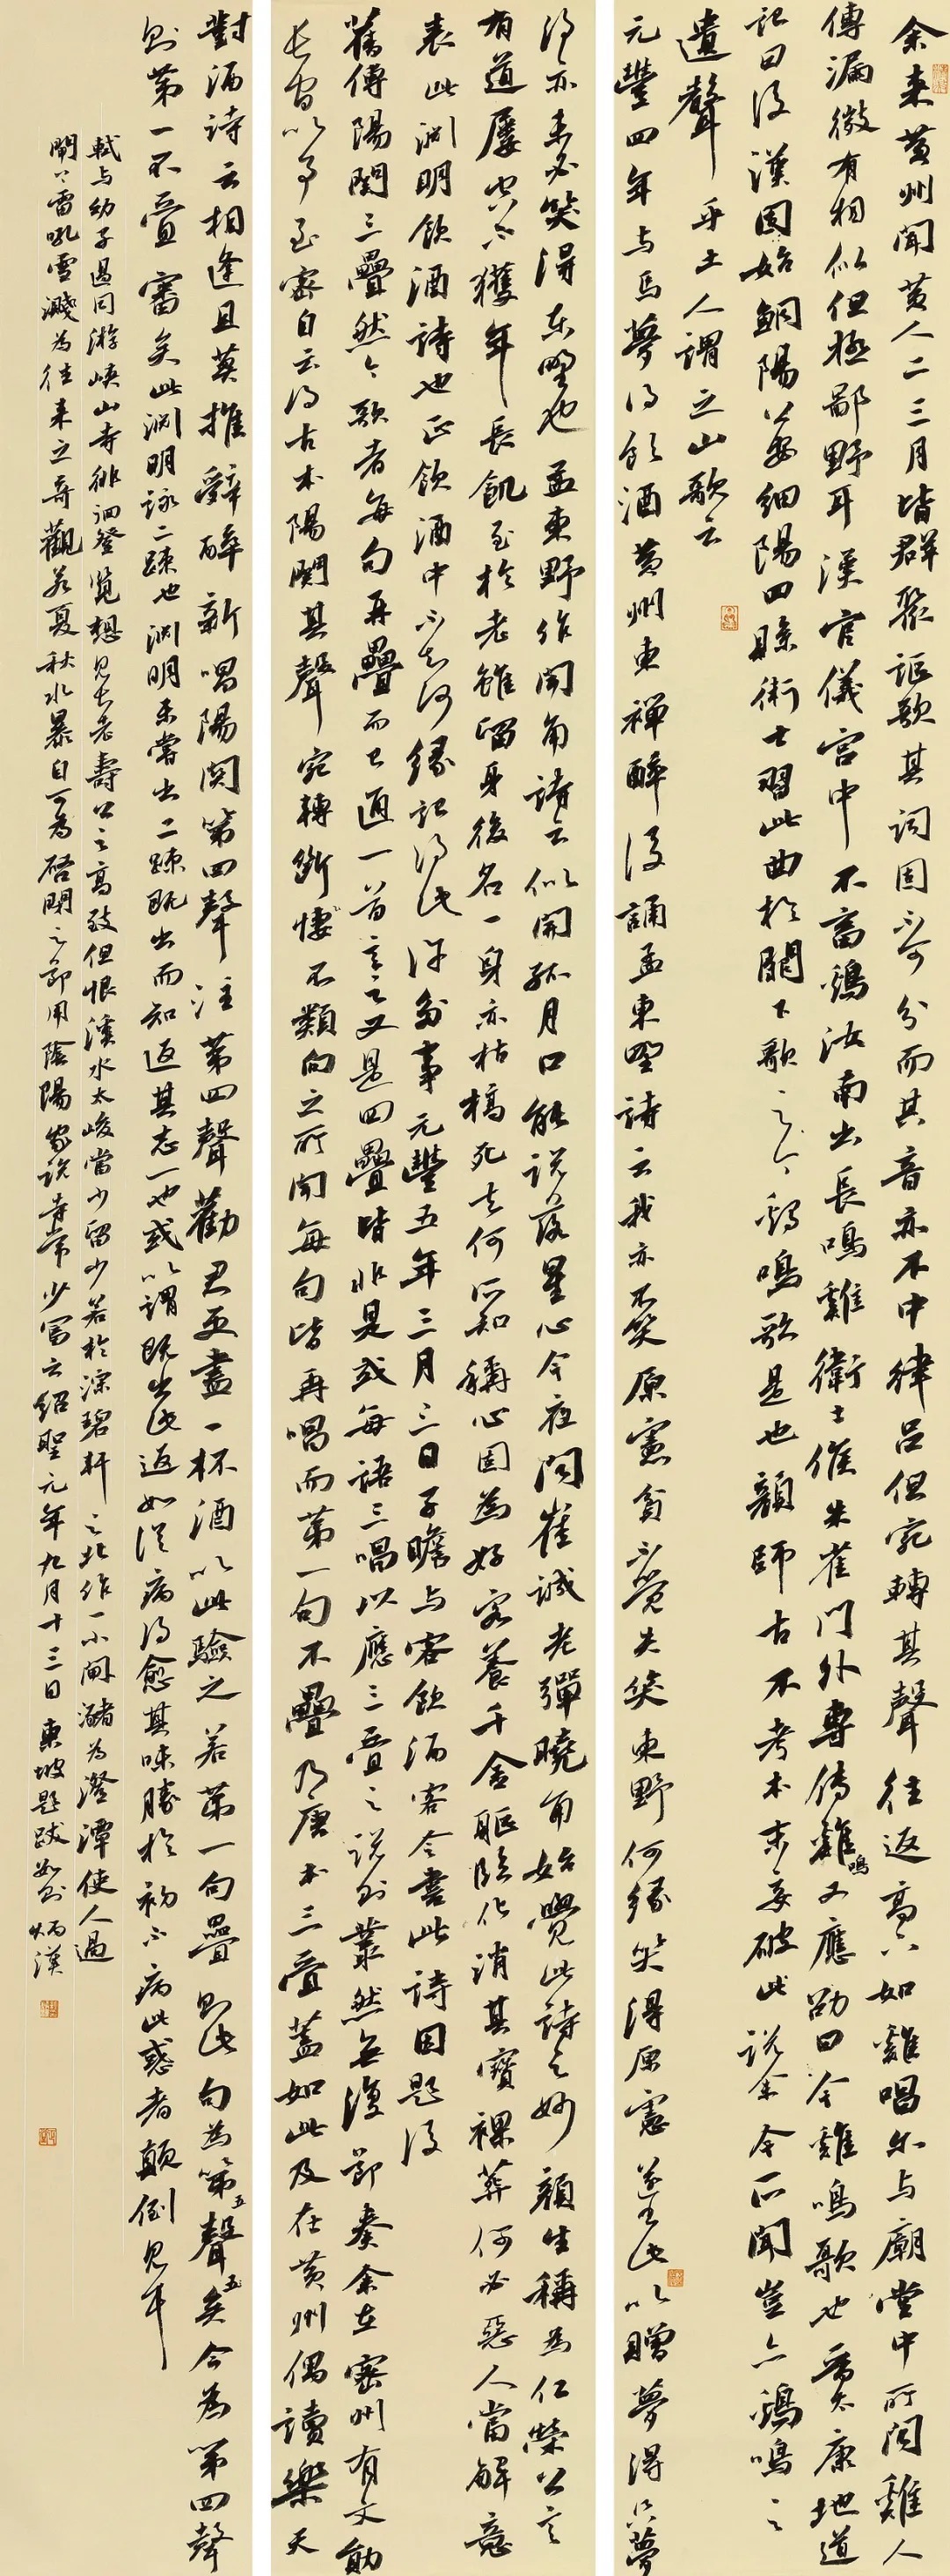 余来黄州聞黄人二三月皆群聚謳歌其詞固不可分而其音亦不中律吕但宛轉其聲往返高下如雞唱尔与廟堂中所聞雞人
傳漏微有相似但極鄙野耳漢官儀宫中不畜鷄汝南出長鳴雞衛士候朱雀門外專傳雞鳴又應劭曰今雞鳴歌也晉太康地道
記曰後漢固始鮦陽公安細陽四縣衛士習此曲於闕下歌之今鷄鳴歌是也顔師古不考本末妄破此説余今所聞豈亦鷄鳴之
遺聲乎土人謂之山歌云
元豐四年与馬夢得飲酒黄州東禪醉後誦孟東野詩云我亦不笑原憲貧不覺失笑東野何緣笑得原憲遂書此以贈夢得只夢
得亦未必笑得東野也 孟東野作聞角詩云似開孤月口能説落星心今夜聞崔誠老彈曉角始覺此詩之妙 顔生稱為仁榮公言
有道屢空不獲年長飢至於老雖留身後名一身亦枯槁死去何所知稱心固為好客養千金軀臨化消其寶裸葬何必惡人當解意
表此淵明飲酒詩也正飲酒中不知何緣記得此許多事元豐五年三月三日子瞻与客飲酒客令書此詩因題後
舊傳陽関三疊然今歌者每句再疊而已通一首言之又是四疊皆非是或每語三唱以應三疊之説則叢然無復節奏余在密州有文勛
長官以事至密自云得古本陽関其聲宛轉悽斷不類向之所聞每句皆再唱而第一句不疊乃唐本三疊蓋如此及在黄州偶讀樂天
對酒詩云相逢且莫推辭醉新唱陽関第四聲注第四聲勸君更盡一杯酒以此驗之若第一句疊則此句為第五聲矣今為第四聲
則第一不疊審矣此淵明詠二疎也淵明未嘗出二疎既出而知返其志一也或以謂既出此返如從病得愈其味勝於初不病此惑者顛倒見耳
軾与幼子過同游峽山寺徘徊登覽想見長老壽公之高致但恨溪水太峻當少留少若於淙碧軒之北作一小閘瀦為澄潭使人過
閘上雷吼雪濺為往来之奇觀若夏秋水暴自可為啓閉之節用陰陽家説寺常少富云紹聖元年九月十三日 東坡題跋如則 炳漢